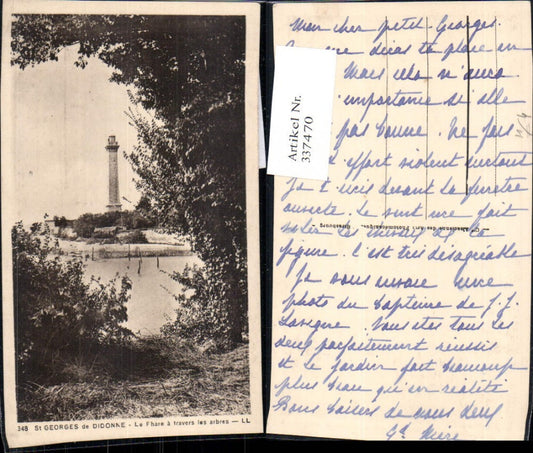 348 St GEORGES de DIDONNE - Le Phare à travers les arbres — LL
Artikel Nr.
337470
Mon cher petit Georges.
diras ta place en
Mais cela n'aura
importance si elle
pas bonne. Ne fais
effort violent surtout
Je t'écris devant la fenêtre
ouverte. Le vent me fait
de ce
C'est très désagréable
Je vous envoie une
photo du Capitaine de J. J.
Vous êtes tous les
deux parfaitement réussis
et le jardin fait beaucoup
plus beau qu'en réalité
Bons baisers de nous deux
Gd Mère